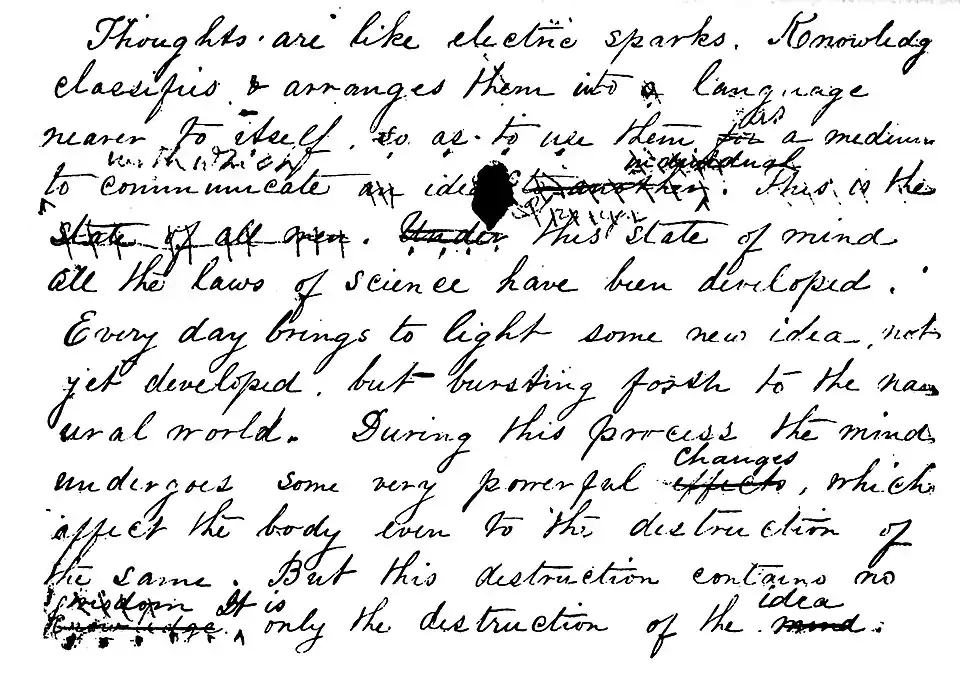 Thoughts are like electric sparks. Knowledg
classifies & arranges them into a language
nearer to itself, so as to use them for as a medium
with which
individual
to communicate an idea to another. This is the
state of all men. Under this state of mind
all the laws of science have been developed.
Every day brings to light some new idea, not
yet developed, but bursting forth to the nat
ural world. During this process the mind
changes
undergoes some very powerful effects, which
affect the body even to the destruction of
the same. But this destruction contains no
wisdom It is idea
knowledge only the destruction of the mind.